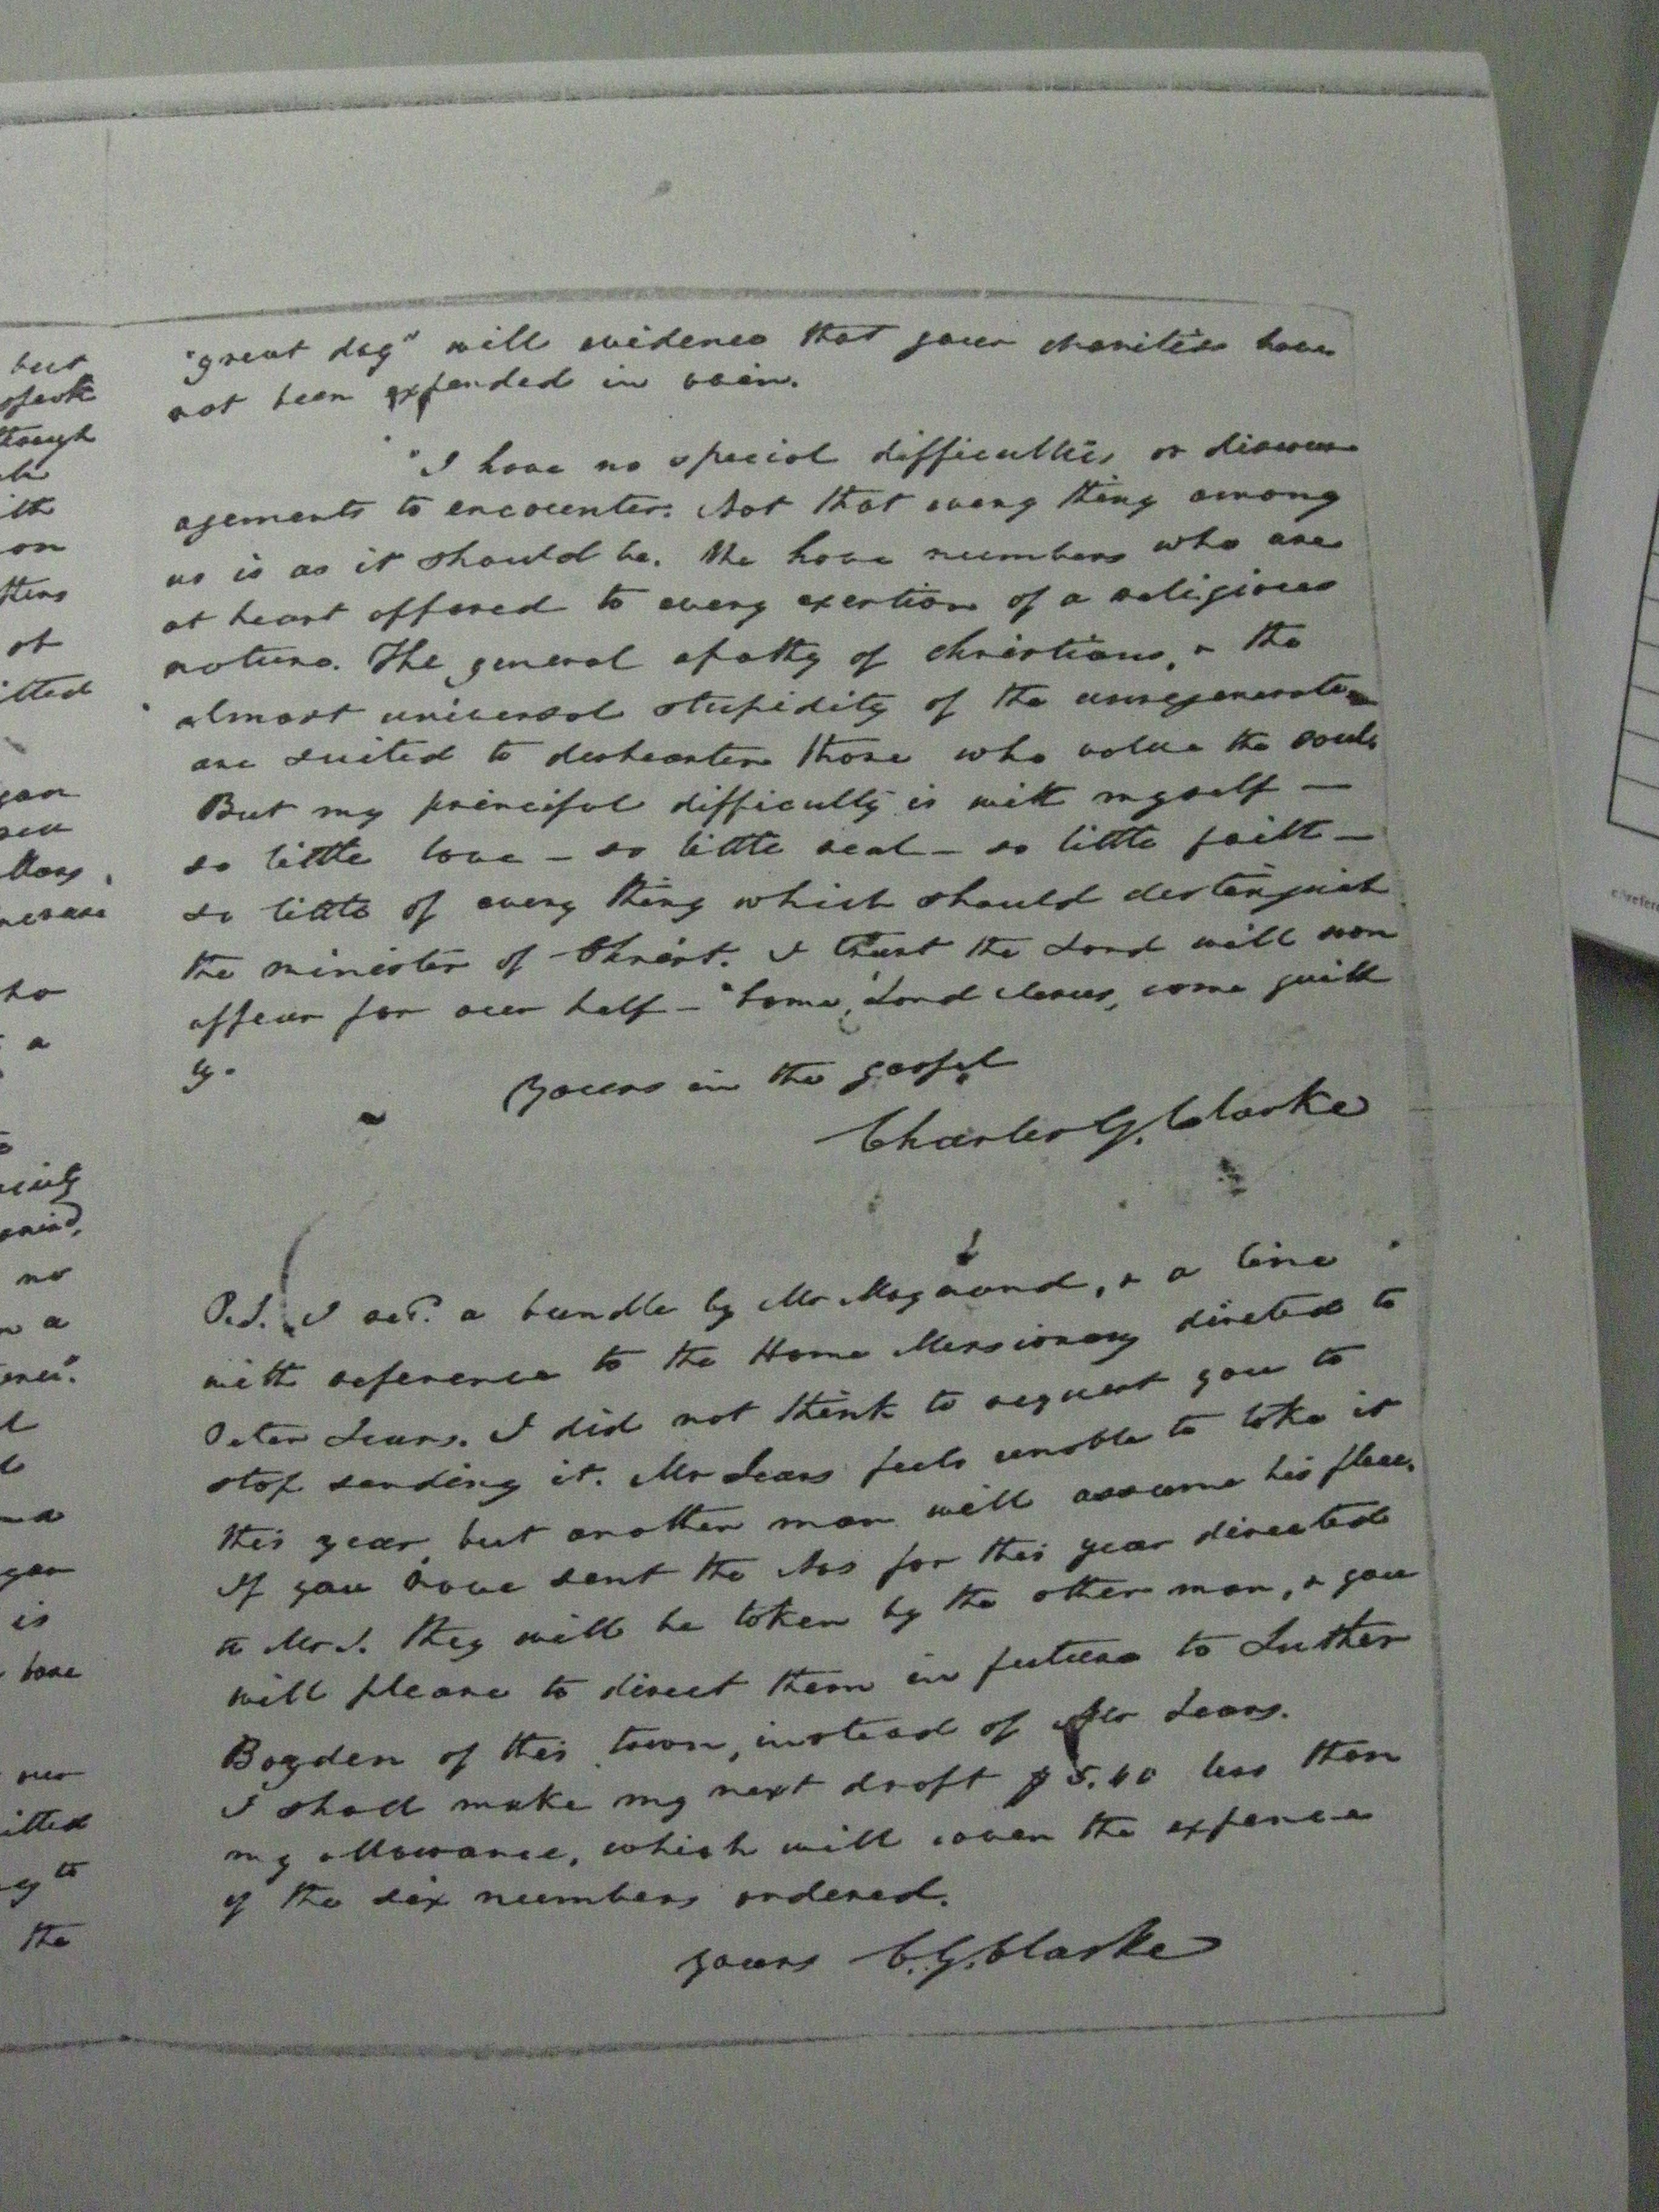 "great day" will evidence that your charities have
not been expended in vain.
"I have no special difficulties or discour
agements to encounter. Not that every thing among
us is as it should be. We have numbers who are
at heart opposed to every exertion of a religious
nature. The general apathy of christians, & the
almost universal stupidity of the unregenerate
are suited to dishearten those who value the souls
But my principal difficulty is with myself —
so little love — so little zeal — so little faith —
so little of every thing which should distinguish
the minister of Christ. I trust the Lord will soon
appear for our help — "Come, Lord Jesus, come quick
ly.
Yours in the gospel
Charles G. Clarke
P.S. I recd. a bundle by Mr Maynard, & a line
with reference to the Home Missionary directed to
Peter Sears. I did not think to request you to
stop sending it. Mr Sears feels unable to take it
this year, but another man will assume his place.
If you have sent the Nos for this year directed
to Mr S. they will be taken by the other man, & you
will please to direct them in future to Luther
Boyden of this town, instead of Mr Sears.
I shall make my next draft $ 5.60 less than
my allowance, which will cover the expence
of the six numbers ordered.
yours C. G. Clarke
but
though
on
of
itted
increase
who
a
no
a
is
have
our
itted
to
the